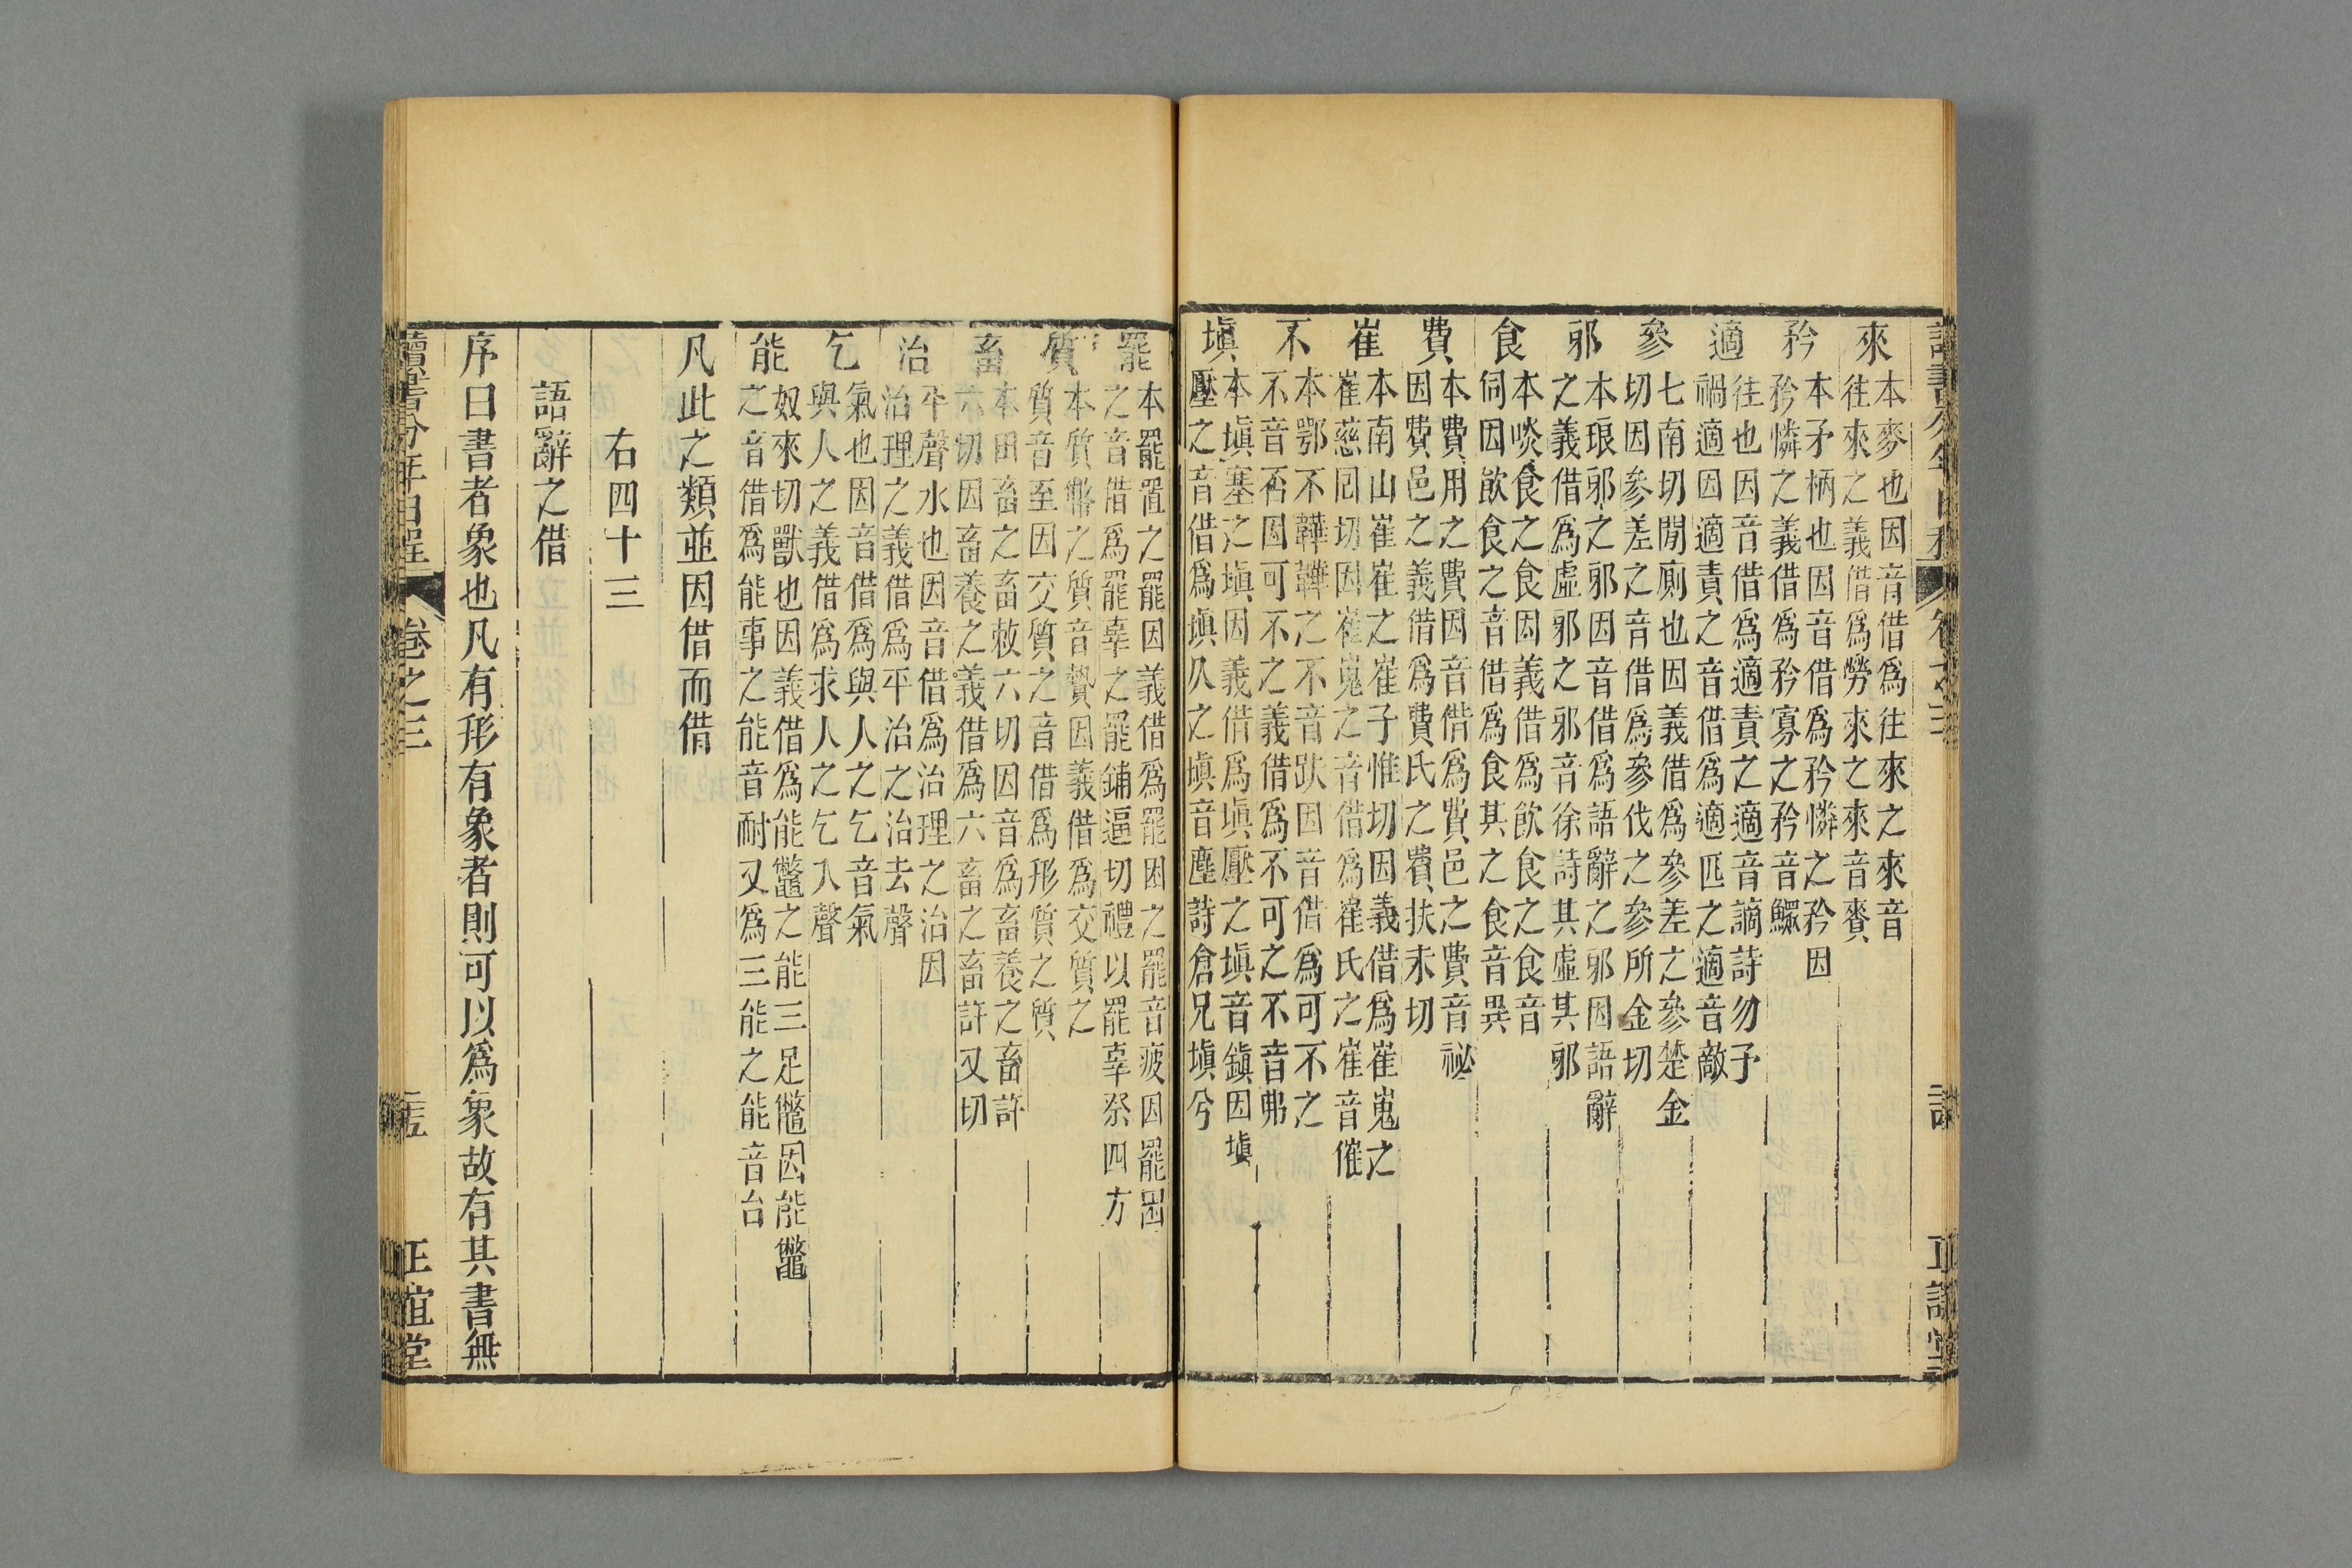 來
本麥也因音借爲往來之來音
往來之義借爲勞來之來音賚
矜
本矛柄也因音借爲矜憐之矜因
矜憐之義借爲矜寡之矜音鰥
適
往也因音借爲適責之適音讁詩勿予
禍適因適責之音借爲適匹之適音敵
參
七南切閒廁也因義借爲參差之參楚金
切因參差之音借爲參伐之參所金切
邪
本琅邪之邪因音借爲語辭之邪因語辭
之義借爲虛邪之邪音徐詩其虛其邪
食
本啖食之食因義借爲飲食之食音
伺因飲食之音借爲食其之食音異
費
本費用之費因音借爲費邑之費音祕
因費邑之義借爲費氏之費扶未切
崔
本南山崔崔之崔子惟切因義借爲崔嵬之
崔慈回切因崔嵬之音借爲崔氏之崔音催
不
本鄂不韡韡之不音趺因音借爲可不之
不音否因可不之義借爲不可之不音弗
塡
本塡塞之塡因義借爲塡壓之塡音鎭因塡
壓之音借爲塡久之塡音塵詩倉兄塡兮
罷
本罷置之罷因義借爲罷困之罷音疲因罷困
之音借爲罷辜之罷鋪逼切禮以罷辜祭四方
質
本質幣之質音贄因義借爲交質之
質音至因交質之音借爲形質之質
畜
本田畜之畜敕六切因音爲畜養之畜許
六切因畜養之義借爲六畜之畜許又切
治
平聲水也因音借爲治理之治因
治理之義借爲平治之治去聲
乞
氣也因音借爲與人之乞音氣
與人之義借爲求人之乞入聲
能
奴來切獸也因義借爲能鼈之能三足鼈因能鼈
之音借爲能事之能音耐又爲三能之能音台
凡此之類並因借而借
右四十三
語辭之借
序曰書者象也凡有形有象者則可以爲象故有其書無
讀書分年日程
卷之三
正誼堂